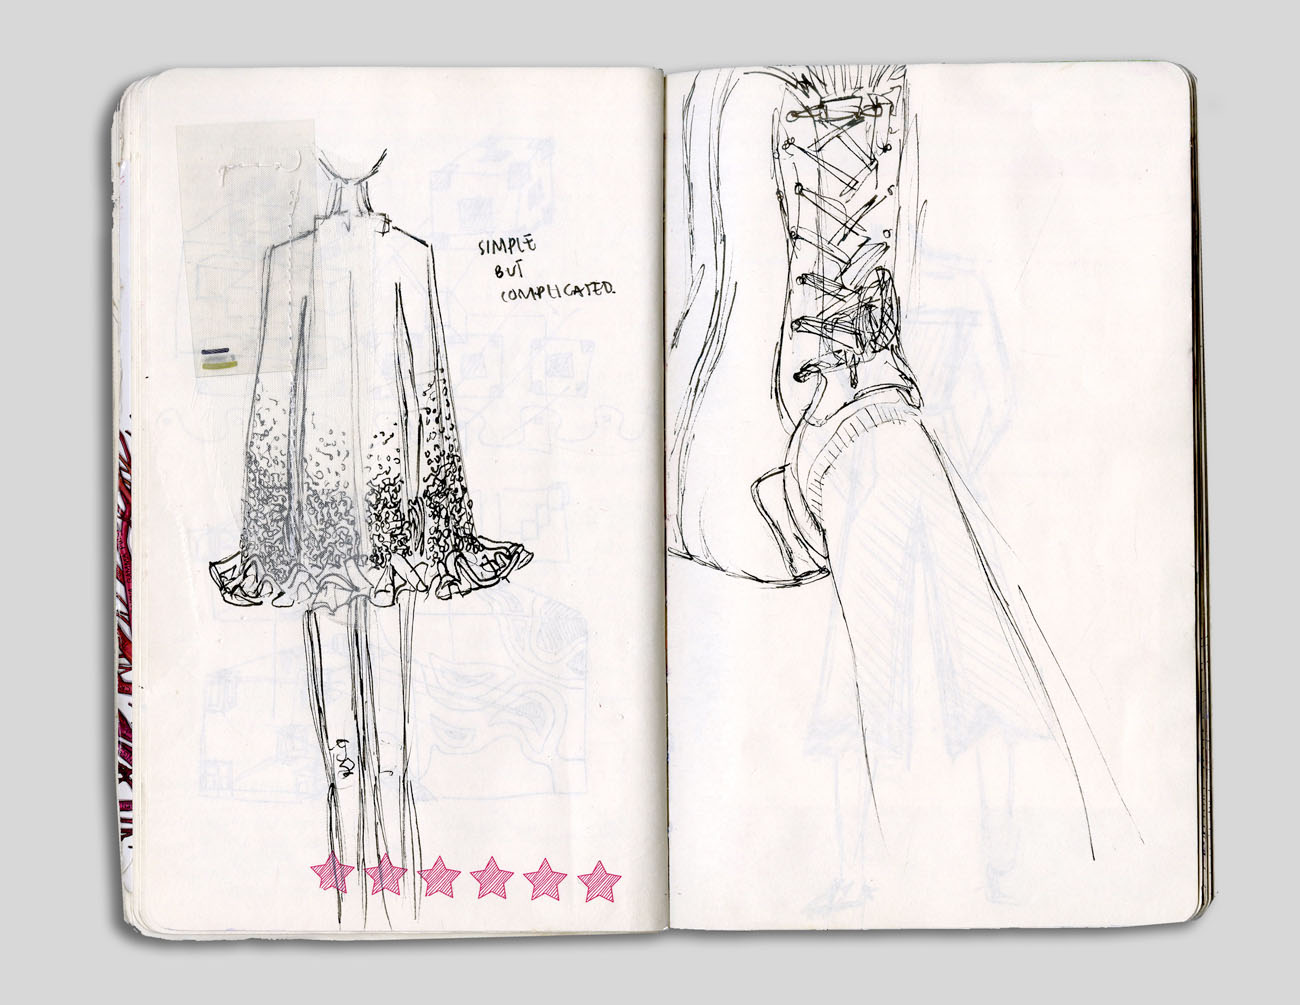 SIMPLE
BUT
COMPLICATED.